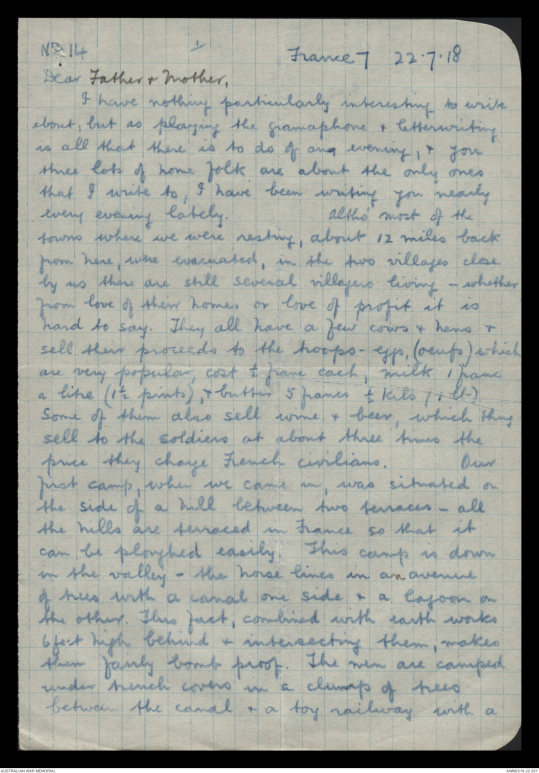 No. 14 1 France 7 22.7.18
Dear Father & Mother,
I have nothing particularly interesting to write
about, but as playing the gramaphone & letterwriting
is all that there is to do of an evening, & you
three lots of home folk are about the only ones
that I write to, I have been writing you nearly
every evening lately. Altho' most of the
towns where we were resting, about 12 miles back
from here, were evacuated, in the two villages close
by us there are still several villagers living - whether
from love of their homes or love of profit it is
hard to say. They all have a few cows & hens &
sell their proceeds to the troops - eggs, (oeufs) which
are very popular, cost ½ franc each, milk 1 franc
a litre (1¾ pints), & butter 5 francs ½ kilo
Some of them also sell wine & beer, which they
sell to the soldiers at about three times the
price they charge French civilians. Our
first camp, when we came in, was situated on
the side of a hill between two terraces - all
the hills are terraced in France so that it
can be ploughed easily. This camp is down
in the valley - the horse lines in an avenue
of trees with a canal one side & a lagoon on
the other. This fact, combined with earth works
6 feet high behind & intersecting them, makes
them fairly bomb proof. The men are camped
under trench covers in a clump of trees
between the canal & a toy railway with a
AUSTRALIAN WAR MEMORIAL